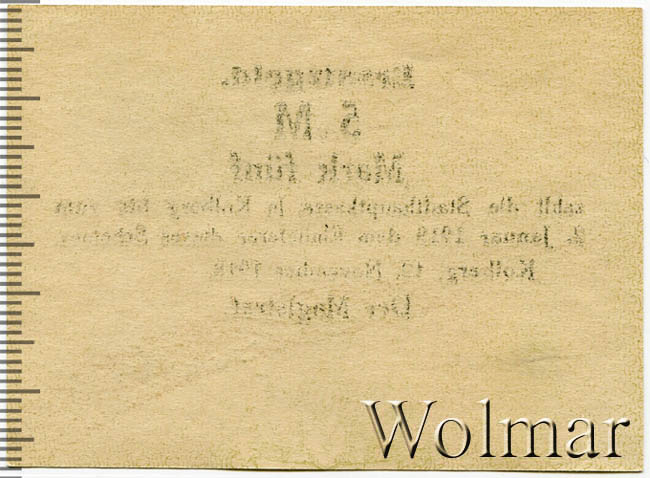 Ersatzgeld.
5 M
Mark fünf
zahlt die Stadthauptkasse in Kolberg bis zum
2. Januar 1919 dem Einlieferer dieses Scheines.
Kolberg, 12. November 1918.
Der Magistrat.
Wolmar